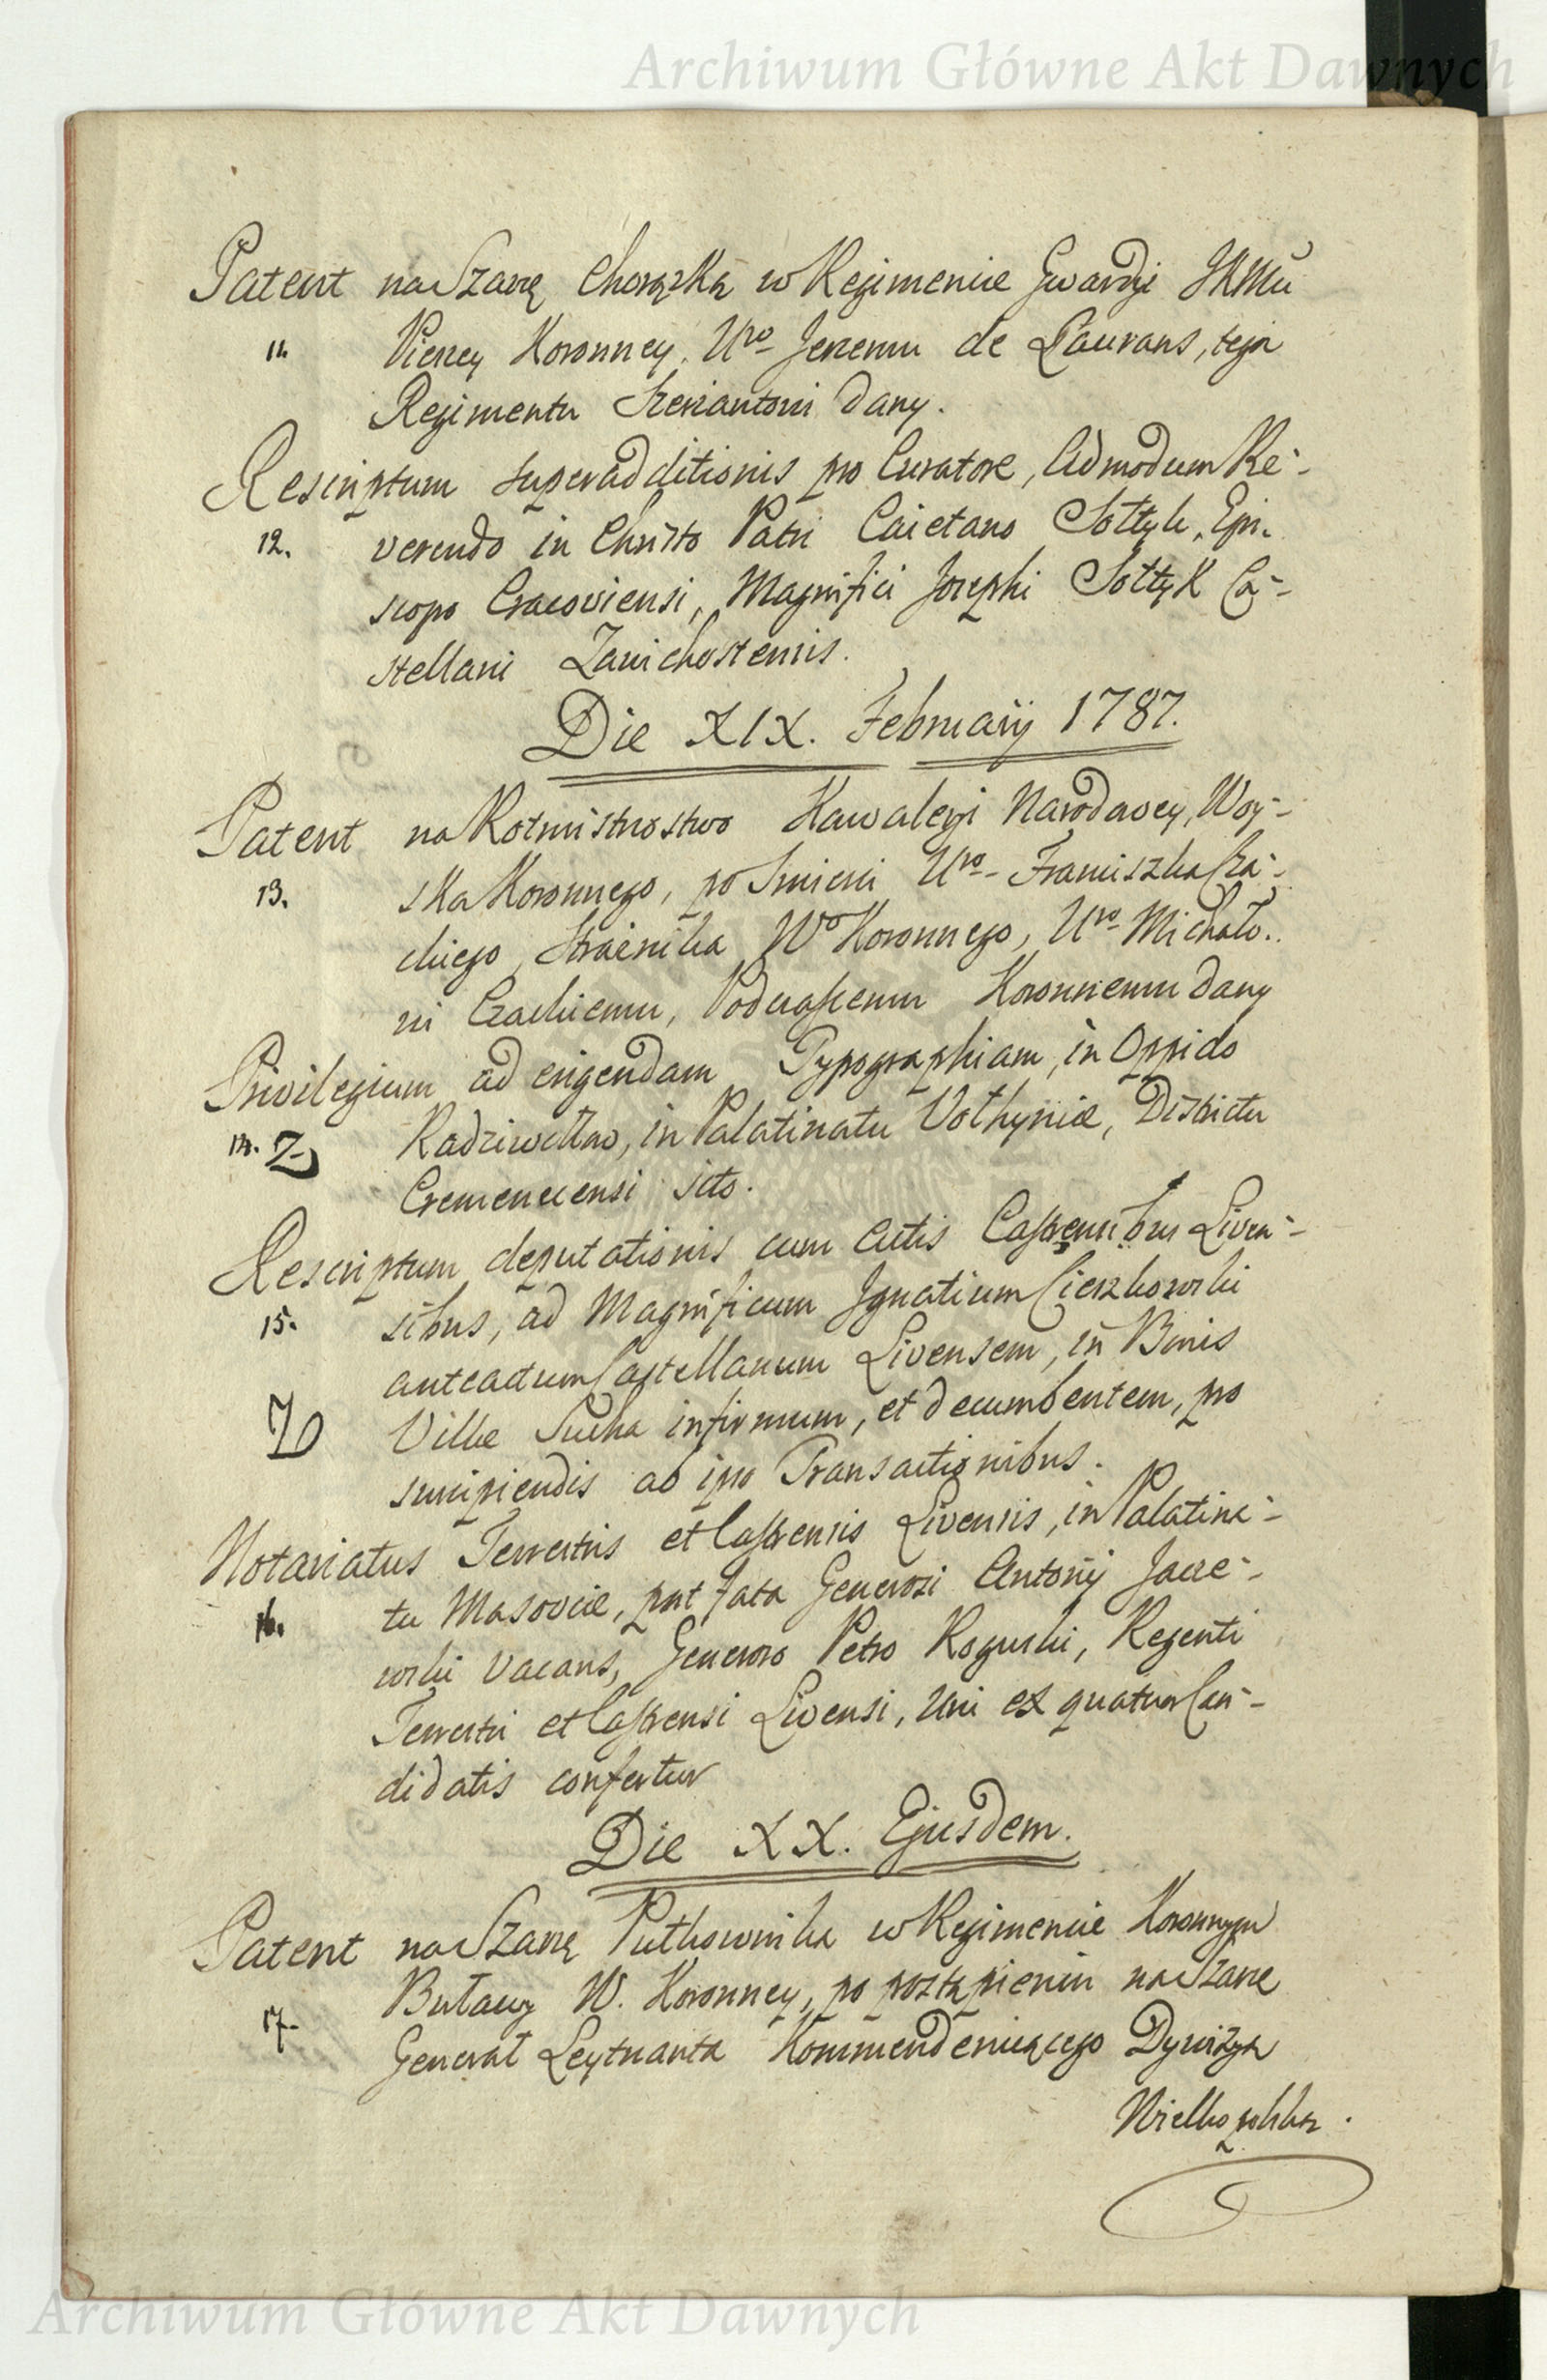 Archiwum Główne Akt Dawnych
Patent na Szarżę Chorążką w Regimencie Gwardyi JKMci
11. Pieszey Koronney. Uro Jerzemu de Laurans, tegoż
Regimentu Szerżantowi dany.
Rescriptum superadditionis pro Curatore, Admodum Re-
12. verendo in Christo Patri Caietano Sołtyk, Epi-
scopo Cracoviensi, Magnifici Josephi Sołtyk Ca-
stellani Zawichostensis.
Die XIX. February 1787.
Patent na Rotmistrzostwo Kawaleryi Narodowey, Woy-
13. ska Koronnego, po Smierci Uro Franciszka Cza-
ckiego, Strażnika Wo Koronnego, Uro Michało-
wi Czackiemu, Podczaszemu Koronnemu dany
Privilegium ad erigendam Typographiam, in Oppido
14. Radziwiłłow, in Palatinatu Volhyniæ, Districtu
Cremenecensi sito.
Rescriptum deputationis cum Actis Castrensibus Liven-
15. sibus, ad Magnificum Ignatium Cieszkowski
anteactum Castellanum Livensem, in Bonis
Villæ Sucha infirmum, et decumbentem, pro
suscipiendis ab ipso Transactionibus.
Notariatus Terrestris et Castrensis Livensis, in Palatina-
16. tu Masoviæ, post fata Generosi Antonij Jarze-
wski vacans, Generoso Petro Roguski, Regenti
Terrestri et Castrensi Livensi, uni ex quatuor Can-
didatis confertur
Die XX. Ejusdem.
Patent na Szarżę Pułkownika w Regimencie Koronnym
17. Buławy W. Koronney, po postąpieniu na Szarżę
Generał Leytnanta Kommenderuiącego Dywizyą
Wielkopolską.
Archiwum Główne Akt Dawnych